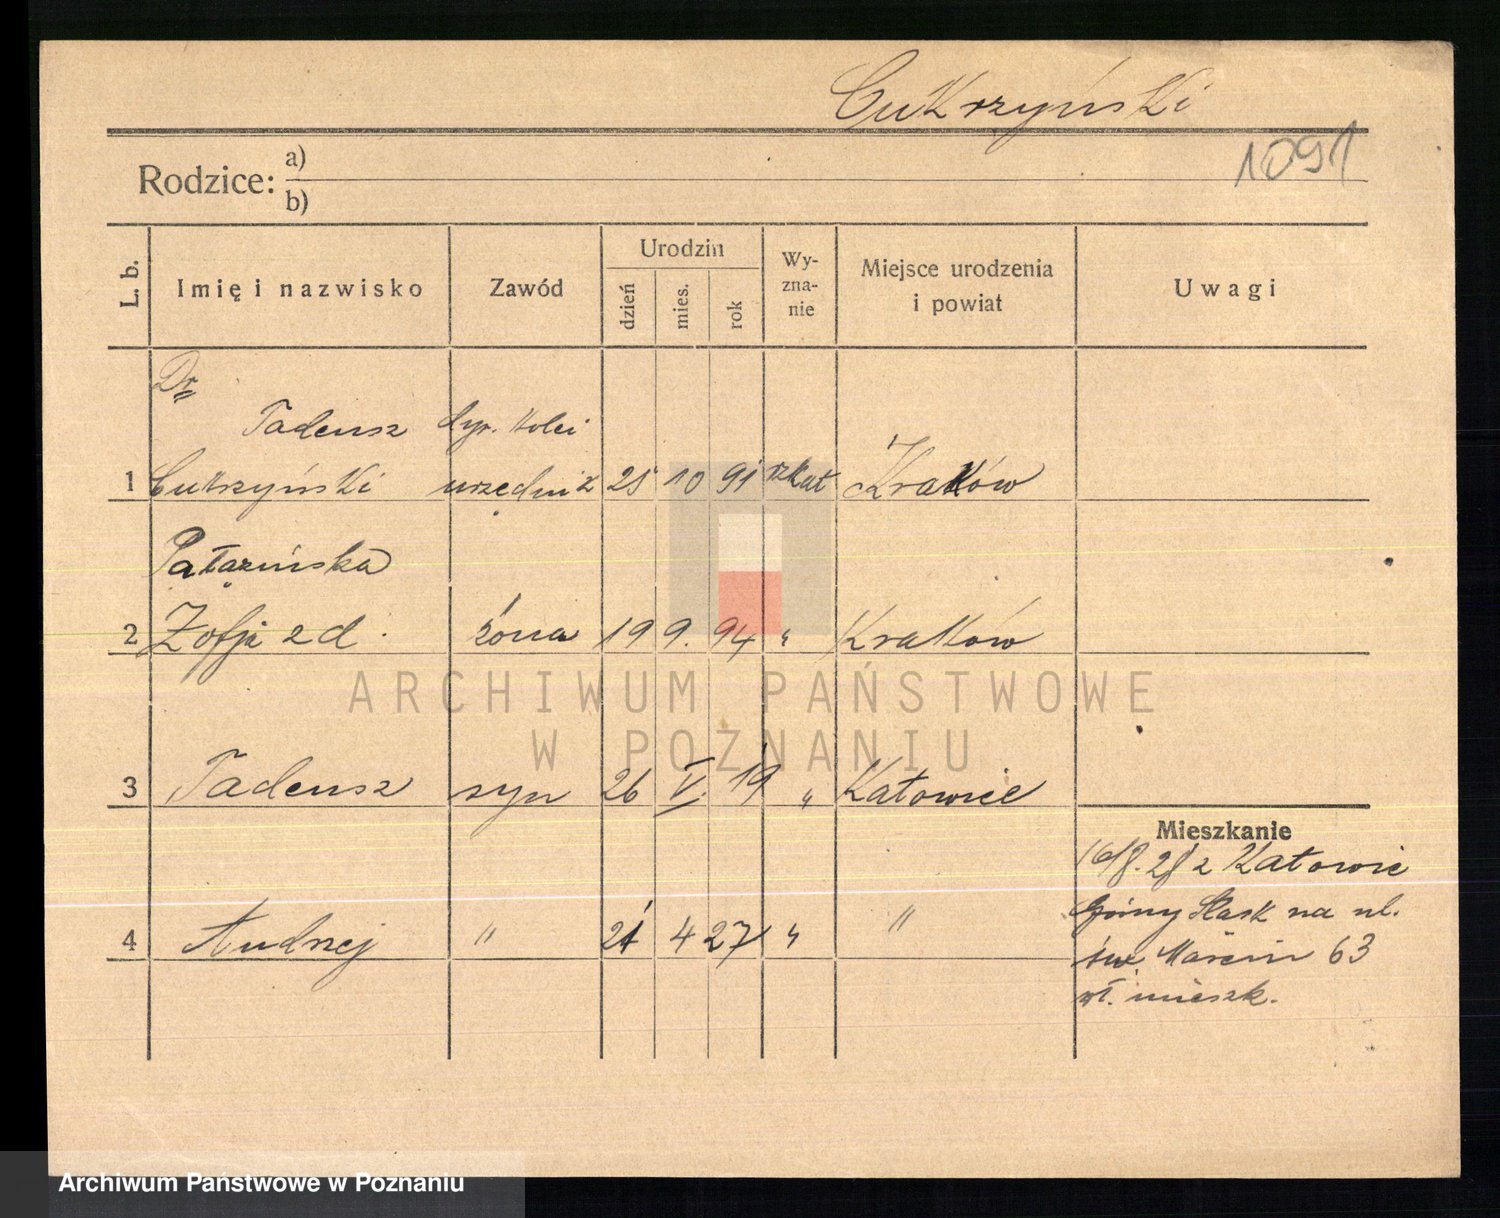 Cukrzyński
1091
Rodzice: a)
b)
L. b.
Imię i nazwisko
Zawód
Urodzin
dzień
mies.
rok
Wy-
zna-
nie
Miejsce urodzenia
i powiat
Uwagi
Dr
Tadeusz dyr. kolei
1 Cukrzyński urzędnik 25 10 91 rzkat Kraków
2 Zofja z d. żona 19 9. 94 " Kraków
3 Tadeusz syn 26 V. 19 " Katowice
Mieszkanie
16/8.28 z Katowic
4 Andrzej " 21 4 27 " "
Górny Śląsk na ul.
św Marcin 63
wł. mieszk.
ARCHIWUM PAŃSTWOWE
W POZNANIU
Archiwum Państwowe w Poznaniu